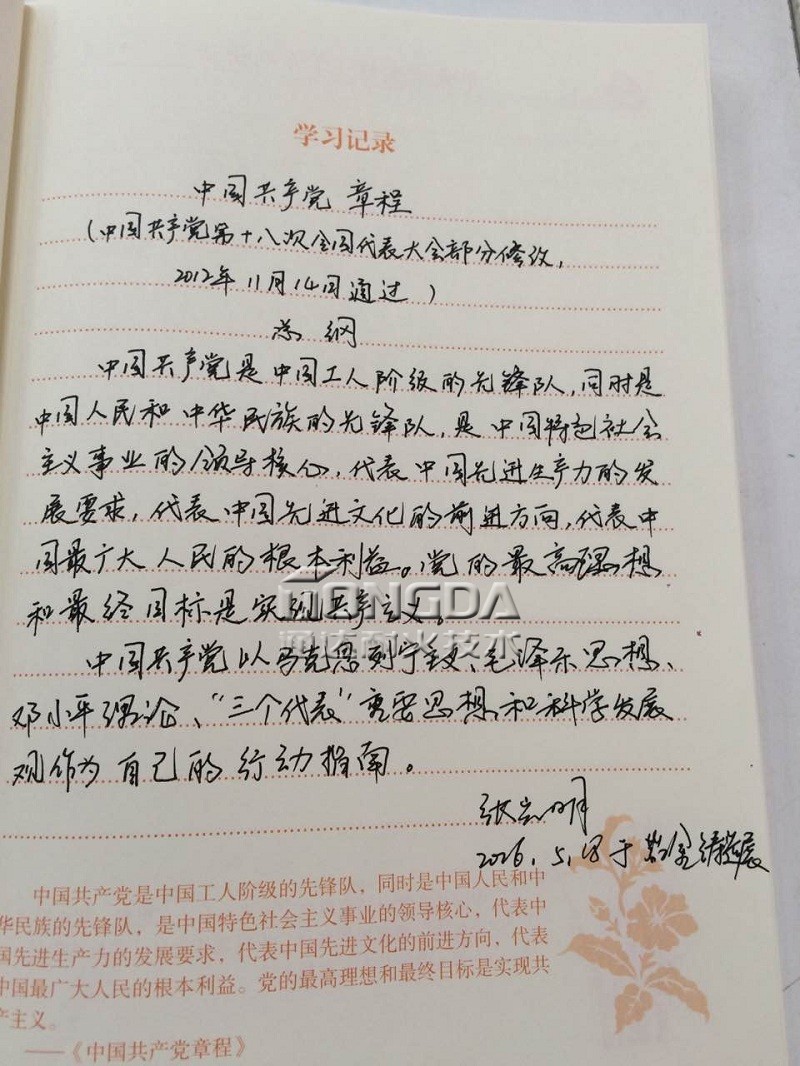 学习记录
中国共产党 章程
(中国共产党第十八次全国代表大会部分修改,
2012年11月14日通过)
总 纲
中国共产党是中国工人阶级的先锋队,同时是
中国人民和中华民族的先锋队,是中国特色社会
主义事业的领导核心,代表中国先进生产力的发
展要求,代表中国先进文化的前进方向,代表中
国最广大人民的根本利益。党的最高理想
和最终目标是实现共产主义。
TONGDA
通达耐火技术
中国共产党以马克思列宁主义、毛泽东思想、
邓小平理论、“三个代表”重要思想和科学发展
观作为自己的行动指南。
2016.5.
中国共产党是中国工人阶级的先锋队,同时是中国人民和中
华民族的先锋队,是中国特色社会主义事业的领导核心,代表中
国先进生产力的发展要求,代表中国先进文化的前进方向,代表
中国最广大人民的根本利益。党的最高理想和最终目标是实现共
产主义。
——《中国共产党章程》